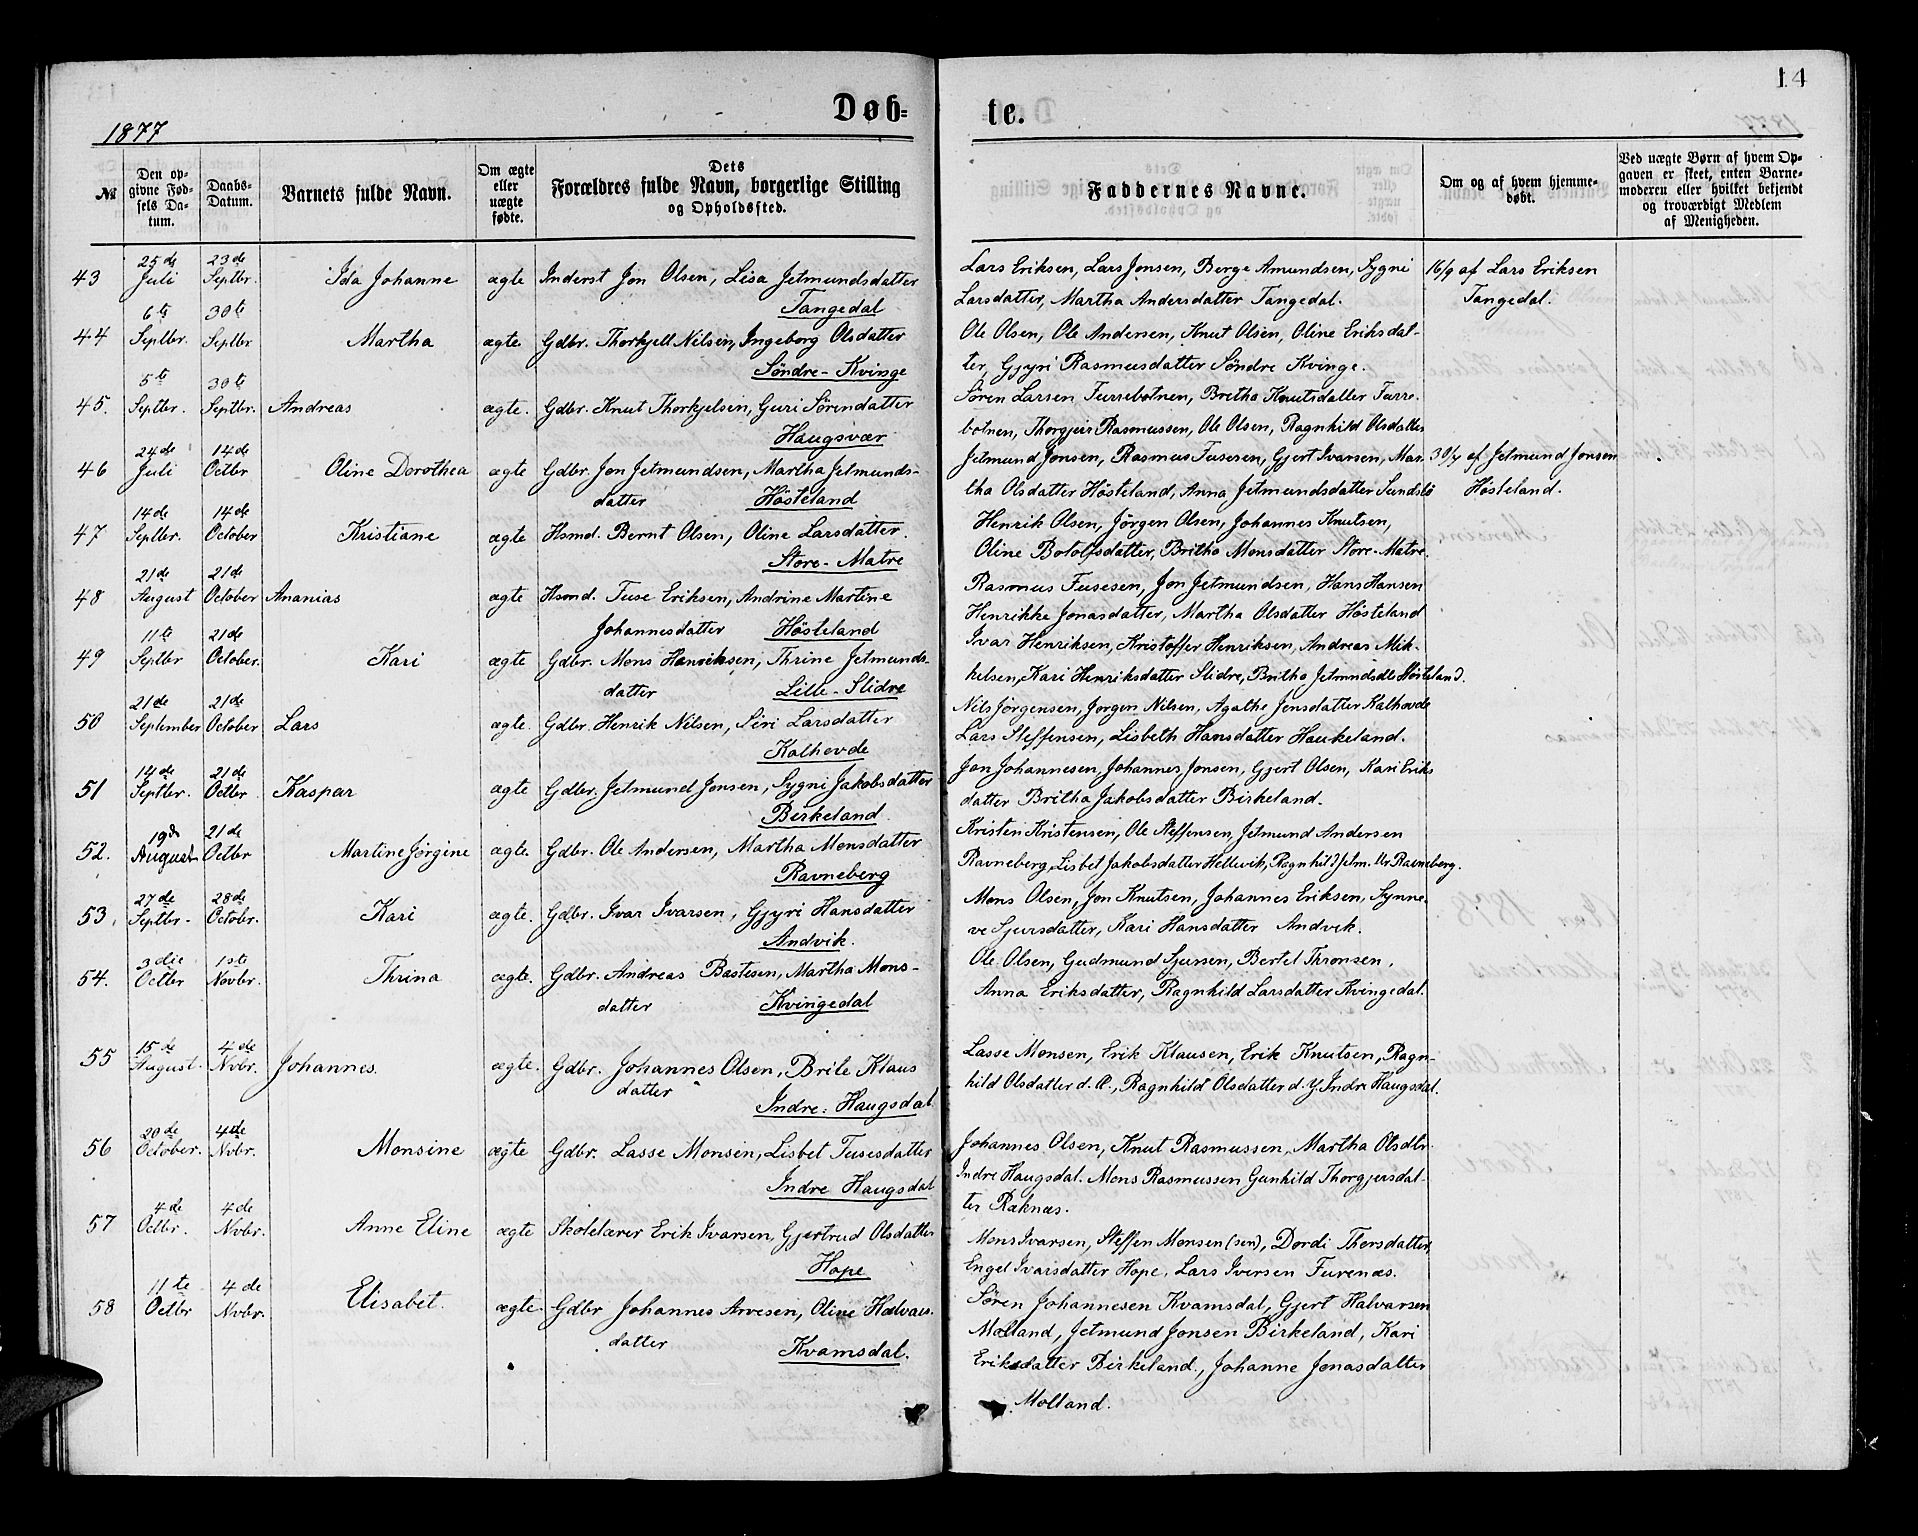 14
Døb-
te.
1877
№
Den op-
givne Fød-
sels Da-
tum.
Daabs-
Datum.
Barnets fulde Navn.
Om ægte
eller
uægte
fødte.
Dets
Forældres fulde Navn, borgerlige Stilling
og Opholdssted.
Faddernes Navne.
Om og af hvem hjemme-
døbt.
Ved uægte Børn af hvem Op-
gaven er skeet, enten Barne-
moderen eller hvilket bekjendt
og troværdigt Medlem
af Menigheden.
43 25de Juli 23de Septbr. Ida Johanne ægte Inderst Jon Olsen, Lisa Jetmundsdatter
Tangedal
Lars Eriksen, Lars Jonsen, Berge Amundsen, Sygni
Larsdatter, Martha Andersdatter Tangedal.
16/9 af Lars Eriksen
Tangedal.
44 6te Septbr. 30te Septbr Martha ægte Gdbr. Thorkjell Nilsen, Ingeborg Olsdatter
Søndre-Kvinge
Ole Olsen, Ole Andersen, Knut Olsen, Oline Eriksdat-
ter, Gjyri Rasmusdatter Søndre Kvinge.
45. 5te Septbr. 30te Septbr. Andreas ægte. Gdbr. Knut Thorkjelsen, Guri Sørendatter
Haugsvær
Søren Larsen Furrebotnen, Britha Knutsdatter Furre-
botnen, Thorgjeir Rasmussen, Ole Olsen, Ragnhild Olsdatter
46 24de Juli 14de Octbr Oline Dorothea ægte Gdbr. Jon Jetmundsen, Martha Jetmunds-
datter Høsteland
Jetmund Jonsen, Rasmus Fusesen, Gjert Ivarsen, Mar-
tha Olsdatter Høsteland, Anna Jetmundsdatter Sundsbø
30/7 af Jetmund Jonsen
Høsteland.
47 14de Septbr. 14de October Kristiane ægte Hsmd. Bernt Olsen, Oline Larsdatter.
Store-Matre
Henrik Olsen, Jørgen Olsen, Johannes Knutsen,
Oline Botolfsdatter, Britha Monsdatter Store-Matre.
48 21de August 21de October Ananias ægte Hsmd. Fuse Eriksen, Andrine Martine
Johannesdatter Høsteland
Rasmus Fusesen, Jon Jetmundsen, Hans Hansen
Henrikke Jonasdatter, Martha Olsdatter Høsteland
49 11te Septbr 21de October. Kari ægte Gdbr. Mons Henriksen, Thrine Jetmunds-
datter Lille-Slidre
Ivar Henriksen, Kristoffer Henriksen, Andreas Mik-
kelsen, Kari Henriksdatter Slidre, Britha Jetmndsdtr Høsteland.
50 21de September 21de October Lars ægte. Gdbr. Henrik Nilsen, Siri Larsdatter
Kalhovde
Nils Jørgensen, Jørgen Nilsen, Agathe Jensdatter Kalhovde
Lars Steffensen, Lisbeth Hansdatter Haukeland.
51 14de Septbr. 21de Octbr Kaspar ægte Gdbr. Jetmund Jonsen, Sygni Jakobsdatter
Birkeland
Jon Johannesen, Johannes Jonsen, Gjert Olsen, Kari Eriks
datter Britha Jakobsdatter Birkeland.
52. 19de August 21de Octbr Martine Jørgine ægte. Gdbr. Ole Andersen, Martha Monsdatter
Ravneberg
Kristen Kristensen, Ole Steffensen, Jetmund Andersen
Ravneberg, Lisbet Jakobsdatter Hellevik, Ragnhild Jetm.dtr Ravneberg.
53. 27de Septbr. 28de Octobr. Kari ægte. Gdbr. Ivar Ivarsen, Gjyri Hansdatter
Andvik.
Mons Olsen, Jon Knutsen, Johannes Eriksen, Synne-
ve Sjursdatter, Kari Hansdatter Andvik.
54. 3die Octbr 1ste Novbr. Thrina ægte. Gdbr. Andreas Bastesen, Martha Mons-
datter Kvingedal
Ole Olsen, Gudmund Sjursen, Bertel Thronsen,
Anna Eriksdatter, Ragnhild Larsdatter Kvingedal.
55 15de August 4de Nvbr. Johannes. ægte. Gdbr. Johannes Olsen, Brite Klaus
datter Indre-Haugsdal
Lasse Monsen, Erik Klausen, Erik Knutsen, Ragn-
hild Olsdatter d. Æ., Ragnhild Olsdatter d. Y. Indre Haugsdal.
56 20de October. 4de Nvbr. Monsine ægte Gdbr. Lasse Monsen, Lisbet Fusesdatter
Indre Haugsdal
Johannes Olsen, Knut Rasmussen, Martha Olsdtr.
Indre Haugsdal. Mons Rasmussen Gunhild Thorgjersdat-
ter Raknæs.
57 4de Octbr. 4de Nvbr. Anne Eline ægte Skolelærer Erik Ivarsen, Gjertrud Olsdatter
Hope
Mons Ivarsen, Steffen Monsen (sen), Dordi Thorsdatter,
Engel Ivarsdatter Hope, Lars Iversen Furenæs.
58 11te Octbr 4de Nvbr. Elisabet. ægte. Gdbr Johannes Arvesen, Oline Halvars-
datter Kvamsdal.
Søren Johannesen Kvamsdal, Gjert Halvarsen
Molland, Jetmund Jonsen Birkeland, Kari
Eriksdatter Birkeland, Johanne Jonasdatter
Molland.